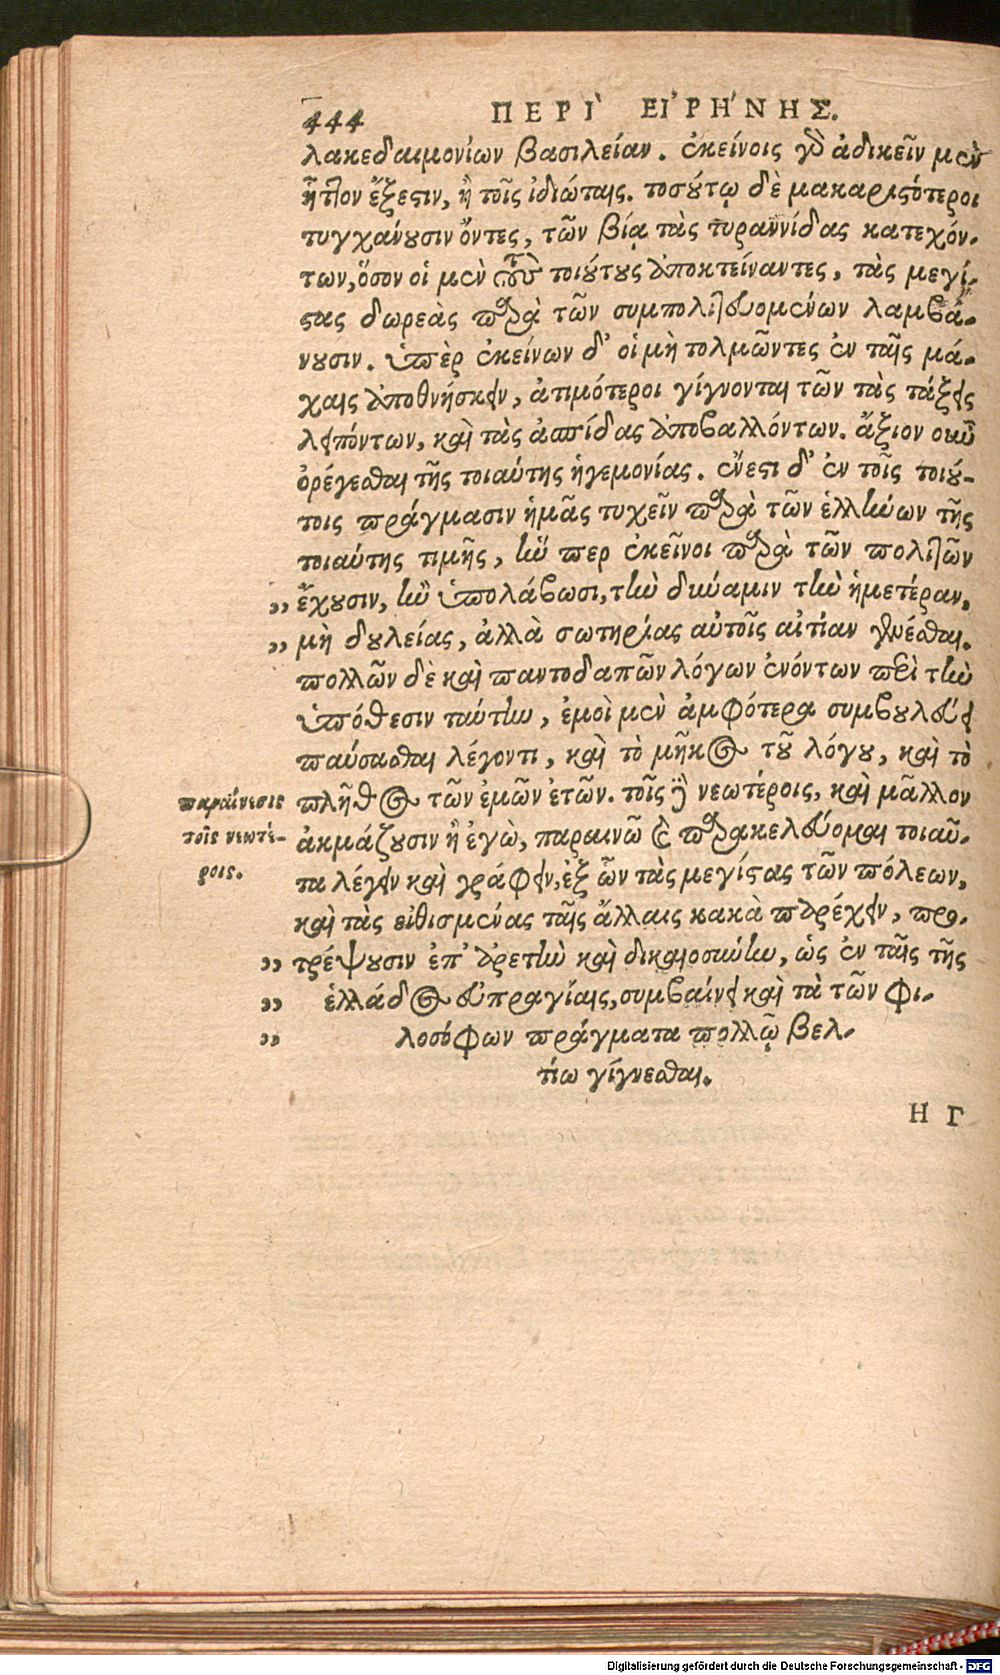 444 ΠΕΡῚ ΕἸΡΉΝΗΣ.
λακεδαιμονίων βασιλείαν. ἐκείνοις γὸ ἀδικεῖν μὲν
ἧττον ἔξεστιν, ἢ τοῖς ἰδιώταις. τοσούτῳ δὲ μακαριστότεροι
τυγχάνουσιν ὄντες, τῶν βίᾳ τὰς τυραννίδας κατεχόν-
των, ὅσον οἱ μὲν τοὺς τοιούτους ἀποκτείναντες, τὰς μεγί-
στας δωρεὰς παρὰ τῶν συμπολιτευομένων λαμβά-
νουσιν. ὑπὲρ ἐκείνων δ' οἱ μὴ τολμῶντες ἐν ταῖς μά-
χαις ἀποθνήσκειν, ἀτιμότεροι γίγνονται τῶν τὰς τάξεις
λειπόντων, καὶ τὰς ἀσπίδας ἀποβαλλόντων. ἄξιον οὖν
ὀρέγεσθαι τῆς τοιαύτης ἡγεμονίας. ἔνεστι δ' ἐν τοῖς τοιού-
τοις πράγμασιν ἡμᾶς τυχεῖν παρὰ τῶν ἑλλήνων τῆς
τοιαύτης τιμῆς, ἥν περ ἐκεῖνοι παρὰ τῶν πολιτῶν
,, ἔχουσιν, ἢν ὑπολάβωσι, τὴν δύναμιν τὴν ἡμετέραν,
,, μὴ δουλείας, ἀλλὰ σωτηρίας αὐτοῖς αἰτίαν γενέσθαι.
πολλῶν δὲ καὶ παντοδαπῶν λόγων ἐνόντων περὶ τὴν
ὑπόθεσιν ταύτην, ἐμοὶ μὲν ἀμφότερα συμβουλεύει
παύσασθαι λέγοντι, καὶ τὸ μῆκος τοῦ λόγου, καὶ τὸ
παραίνεσις πλῆθος τῶν ἐμῶν ἐτῶν. τοῖς δὲ νεωτέροις, καὶ μᾶλλον
τοῖς νεωτέ- ἀκμάζουσιν ἢ ἐγὼ, παραινῶ καὶ παρακελεύομαι τοιαῦ-
ροις. τα λέγειν καὶ γράφειν, ἐξ ὧν τὰς μεγίστας τῶν πόλεων,
καὶ τὰς εἰθισμένας ταῖς ἄλλαις κακὰ παρέχειν, προ-
,, τρέψουσιν ἐπ' ἀρετὴν καὶ δικαιοσύνην, ὡς ἐν ταῖς τῆς
,, ἑλλάδος εὐπραγίαις, συμβαίνει καὶ τὰ τῶν φι-
,, λοσόφων πράγματα πολλῷ βελ-
τίω γίγνεσθαι.
ΗΓ
Digitalisierung gefördert durch die Deutsche Forschungsgemeinschaft - DFG